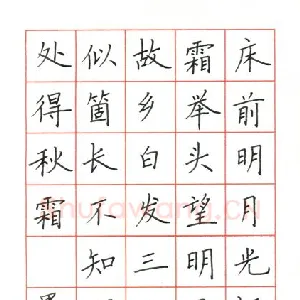 床前明月光
霜举头望明
故乡白发三
似箇长不知
处得秋霜